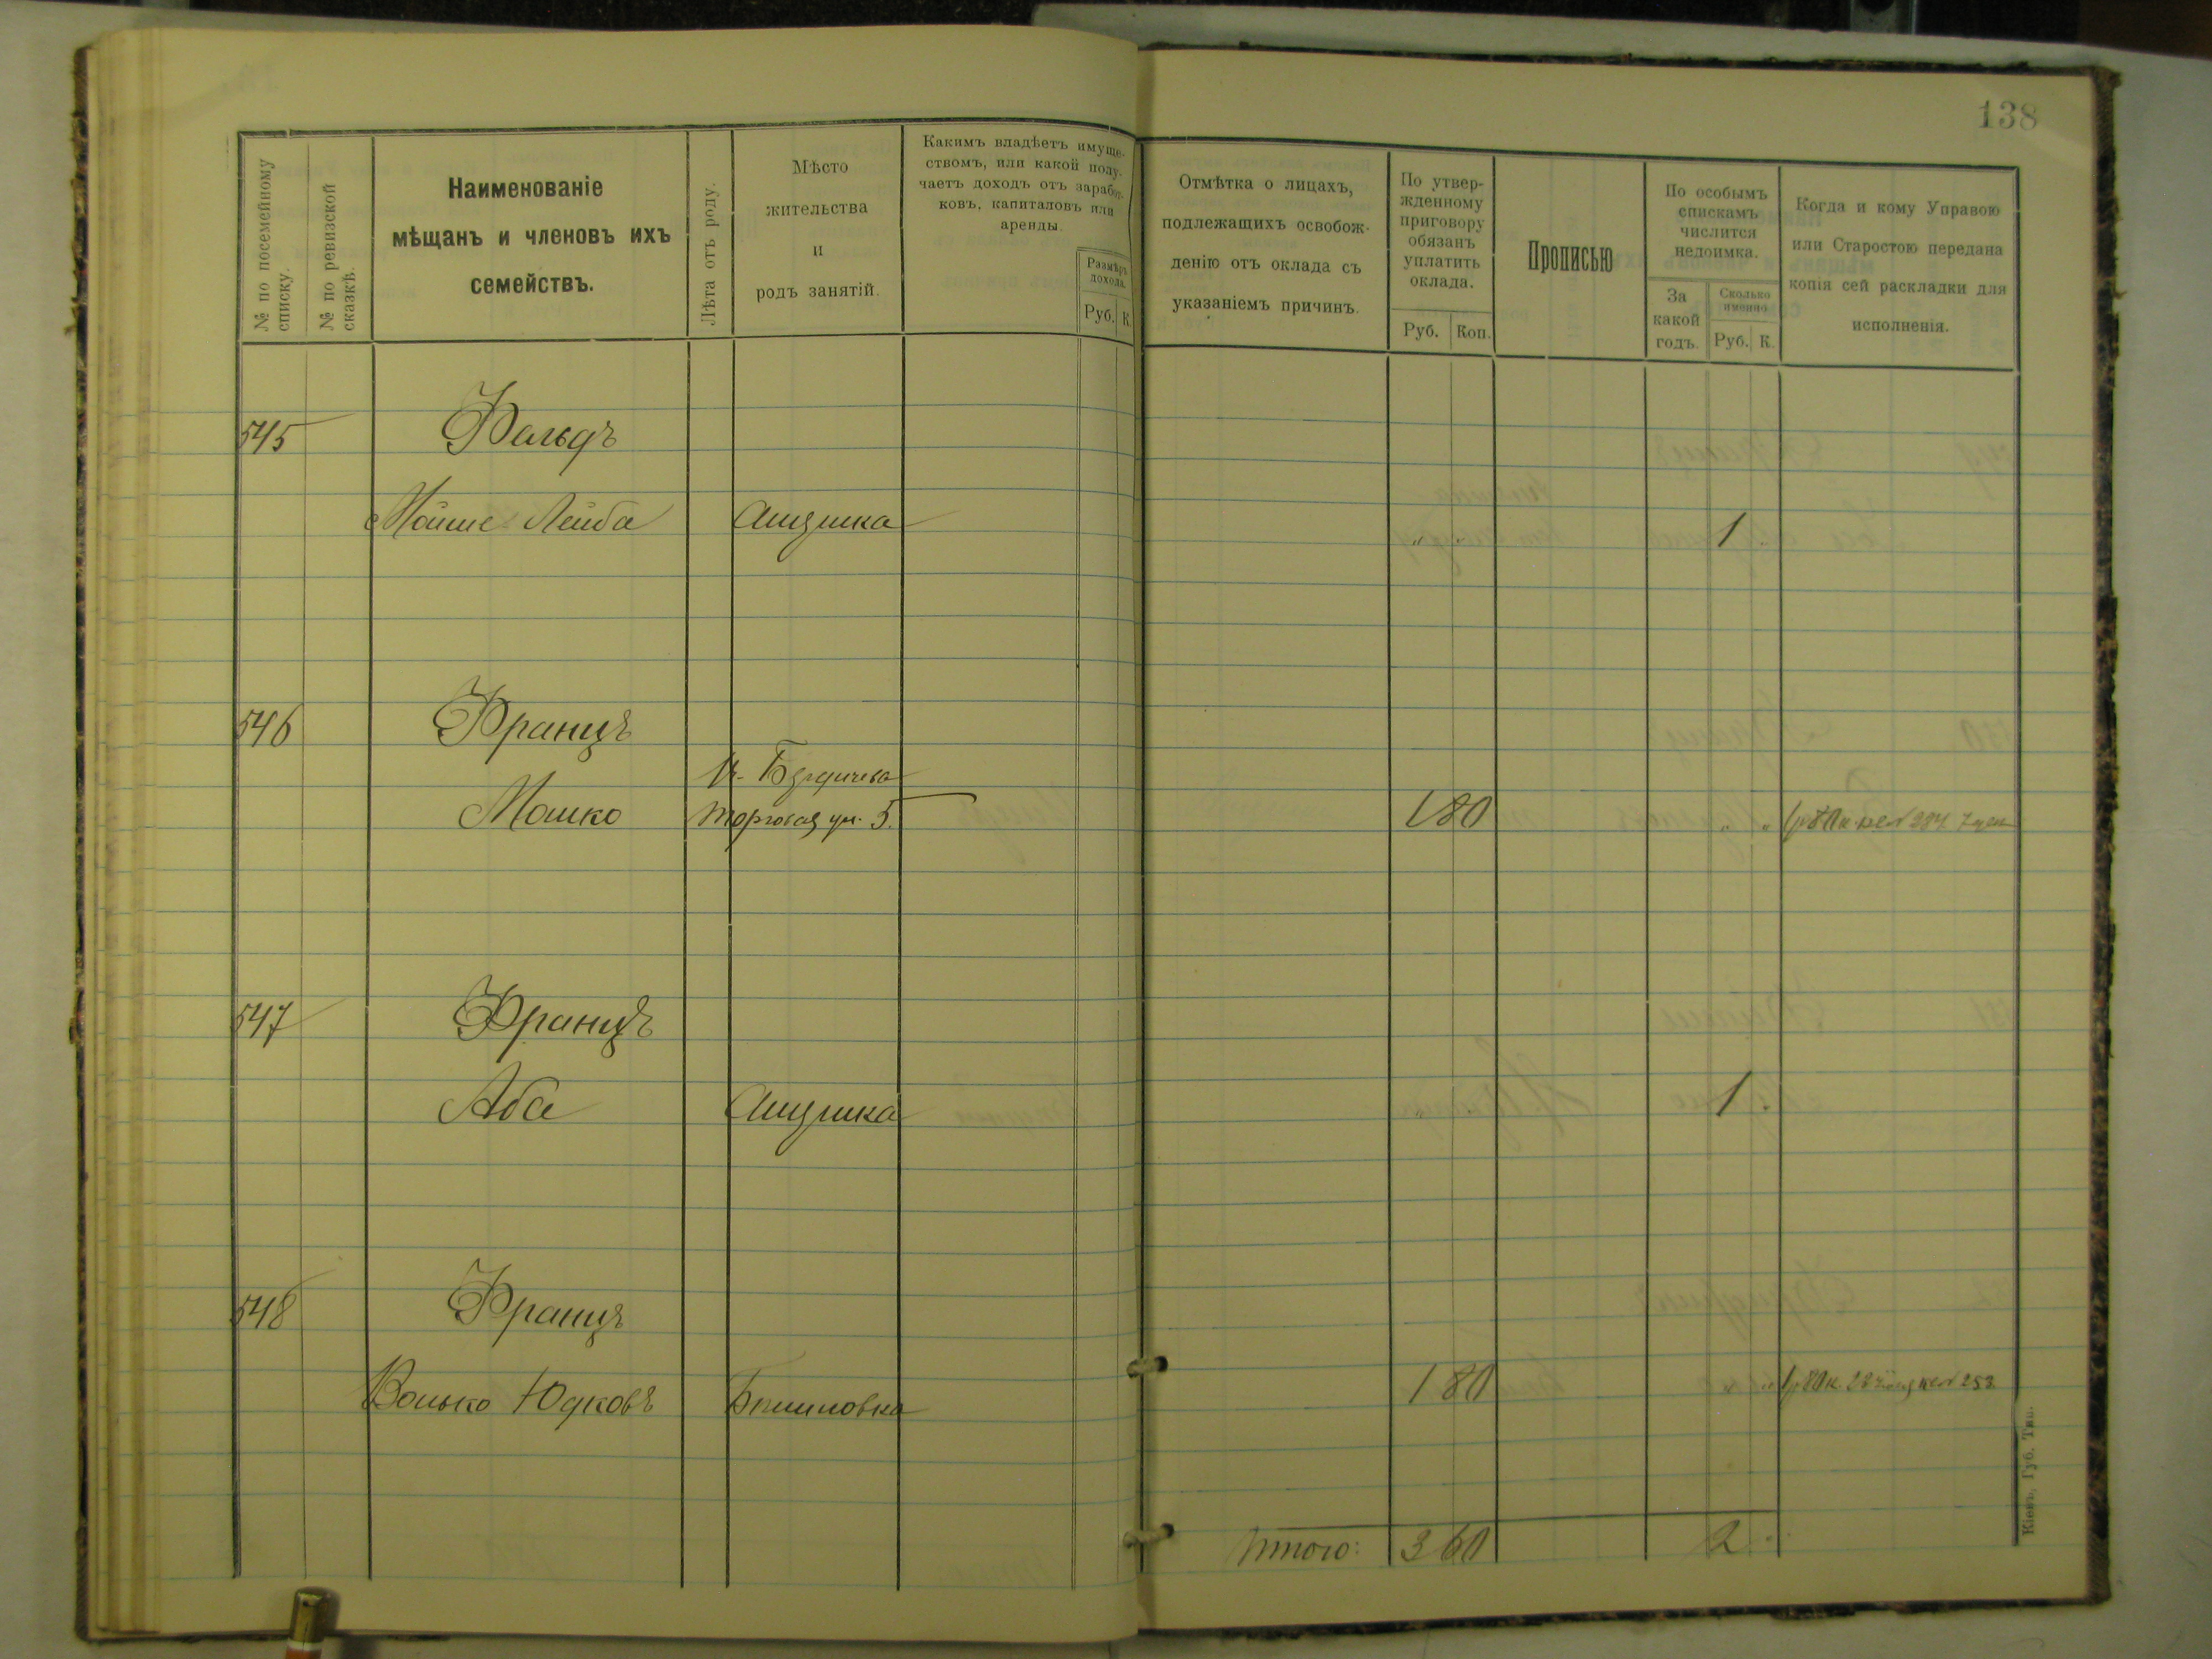 138
№ по посемейному
списку.
№ по ревизской
сказкѣ.
Наименованіе
мѣщанъ и членовъ ихъ
семействъ.
Лѣта отъ роду.
Мѣсто
жительства
и
родъ занятій.
Какимъ владѣетъ имуще-
ствомъ, или какой полу-
чаетъ доходъ отъ заработ-
ковъ, капиталовъ или
аренды.
Размѣръ
дохода.
Руб. К.
Отмѣтка о лицахъ,
подлежащихъ освобож-
денію отъ оклада съ
указаніемъ причинъ.
По утвер-
жденному
приговору
обязанъ
уплатить
оклада.
Руб. Коп.
Прописью
По особымъ
спискамъ
числится
недоимка.
За
какой
годъ.
Сколько
именно
Руб. К.
Когда и кому Управою
или Старостою передана
копія сей раскладки для
исполненія.
545 Фальдъ
Мойше Лейба " " 1 "
546 Францъ
Бердичева
Мошко Торговая ул. 5. 1 80 " "
547 Францъ
Аба " " 1 "
548 Францъ
Волько Юдковъ 1 80 " "
Итого: 3 60 2 "
Кіевъ, Губ. Тип.